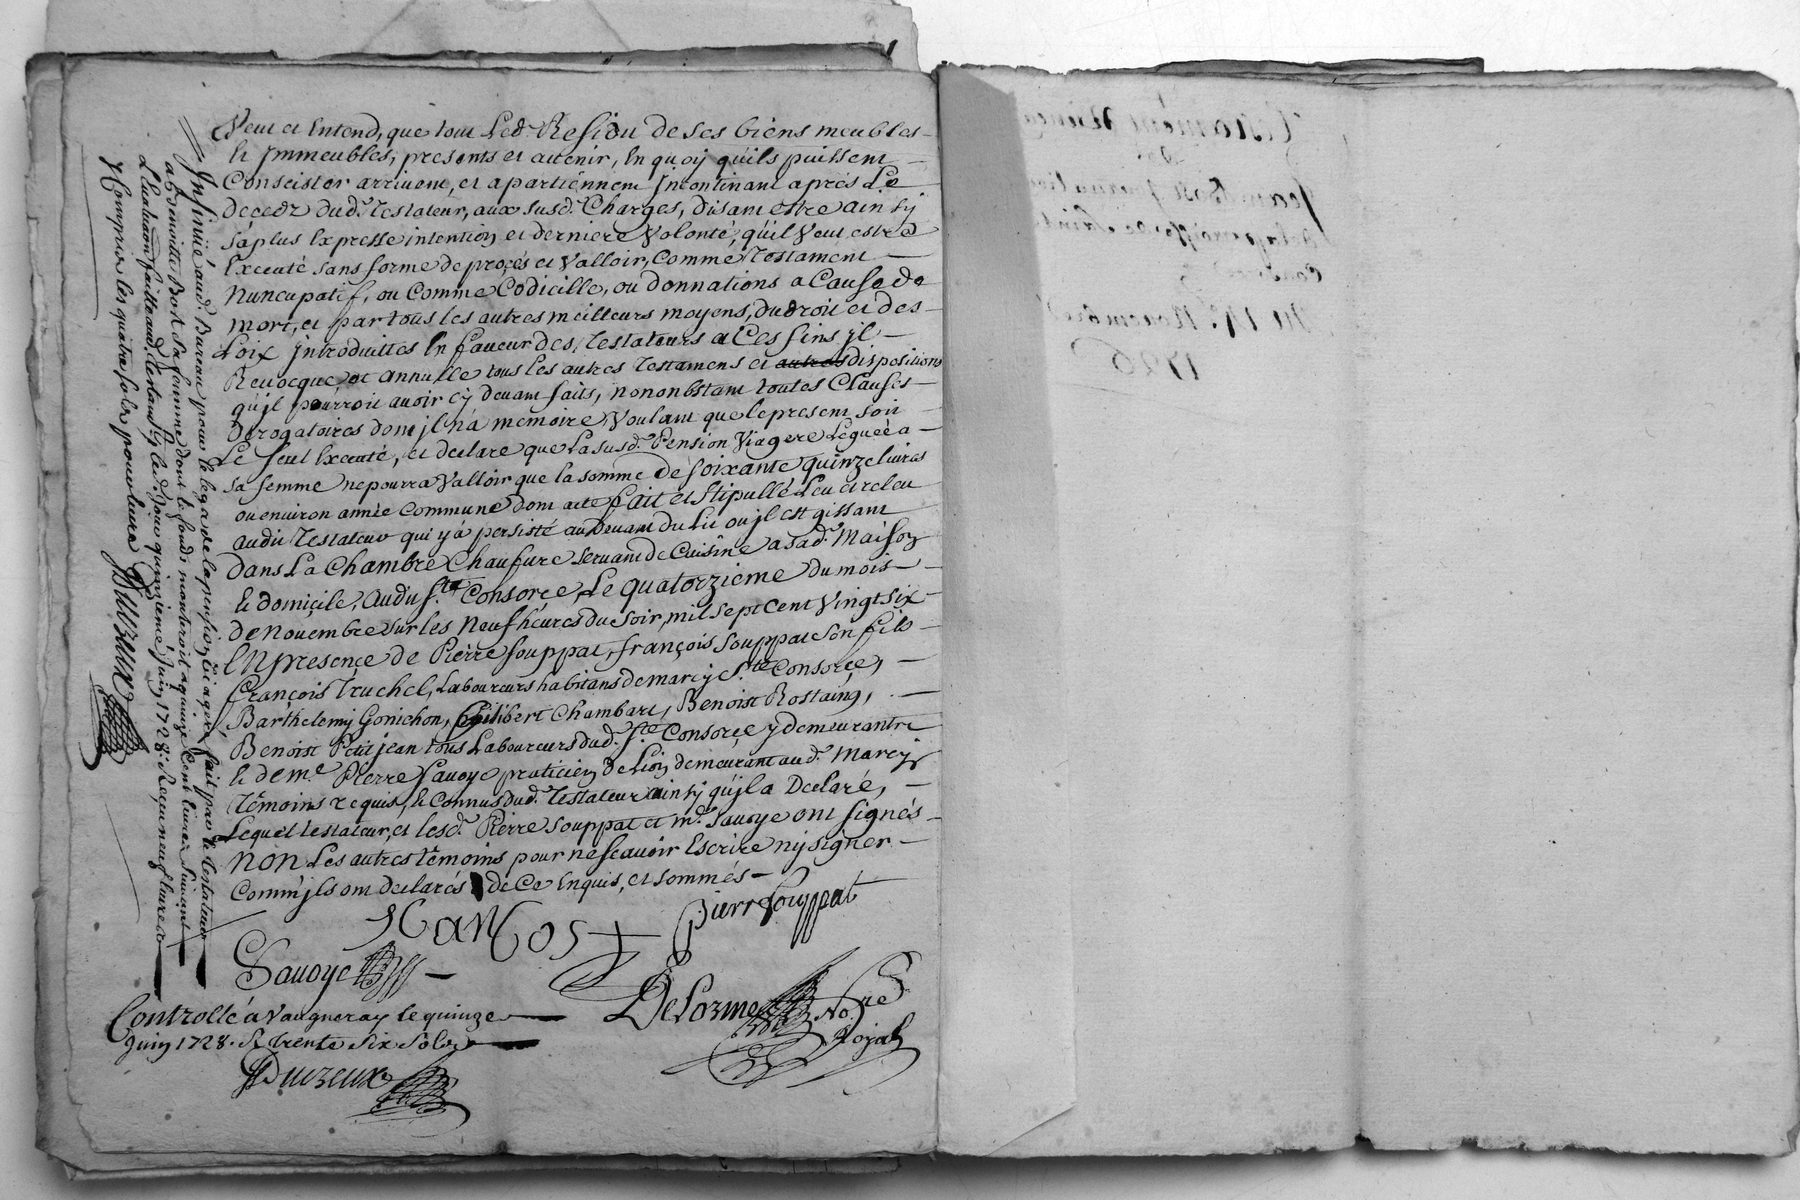 Veut et Entend, que tout Led. Residu de ses biens meubles
Et Immeubles, presents et avenir, En quoy quils puissent
Conscister arrivent, et apartiennent Incontinant aprés Le
decedz dud. Testateur, aux susd. Charges, disant estre ainsy
sa plus Expresse intention et derniere Volonté, quil Veut estre
Executé sans forme de proçés et Valloir, Comme Testament
Nuncupatif, ou Comme Codicille, ou donnations a Cause de
mort, et par tous les autres meilleurs moyens, du droit et des
Loix Introduittes En faveur des Testateurs a Ces fins jl
Revocque et annulle tous les autres Testamens et autres dispositions
qu'jl pourroit avoir cy devant faits, nonobstant toutes Clauses
derogatoires dont jl n'a memoire, Voulant que le present soit
Le seul Executé, et declare que La susd. Pension Viagere Leguée a
sa femme ne pourra Valloir que la somme De soixante quinze livres
ou environ année Commune dont acte fait et stipullé Leu et releu
audit Testateur qui y a persisté au devant du Lit ou jl est gissant
dans La Chambre Chaufure servant de Cuisine a sad. Maison
Et domiçile, audit Ste. Consorçe, Le quatorzieme du mois
de novembre sur les neuf héures du soir, mil sept cent Vingt six
En presençe de Pierre souppat, françois souppat son fils
françois Truchel, Laboureurs habitans de marcy Ste. Consorçe,
Barthelemy Gonichon, Philibert Chambart, Benoist Rostaing,
Benoist Petitjean tous Laboureurs dud. Ste. Consorçe y demeurants
Et de me. Pierre Savoye praticien de Lion demeurant aud. Marcy
Temoins requis, Et Connus dud. Testateur ainsy qu'jl a Declaré,
Lequel testateur, et lesd. Pierre souppat et me. Savoye ont signés
non Les autres témoins pour ne scavoir Escrire ny signer
Comm'jls ont declarés de Ce Enquis, et sommés
pierre souppat
Savoye
DeLorme No.re
Royal
Controllé a Vaugneray le quinze
Juin 1728. R Trente six sols
Duizeux
Insinüé aud. Bureau pour le legat de la pension viagere fait par le testateur
a benoitte Bost sa femme dont le fond monteroit a quinze Cent livres suivant
L'Evaluaon faitte aud. Testamt. Ce d. jour quinzieme Juin 1728. Reçu neuf livres
y Compris les quatre sols pour livre Duizeux
Testament
de
Jean Bost
de la parroisse de Sainte
Consorce
Du 14e. Novembre
1726